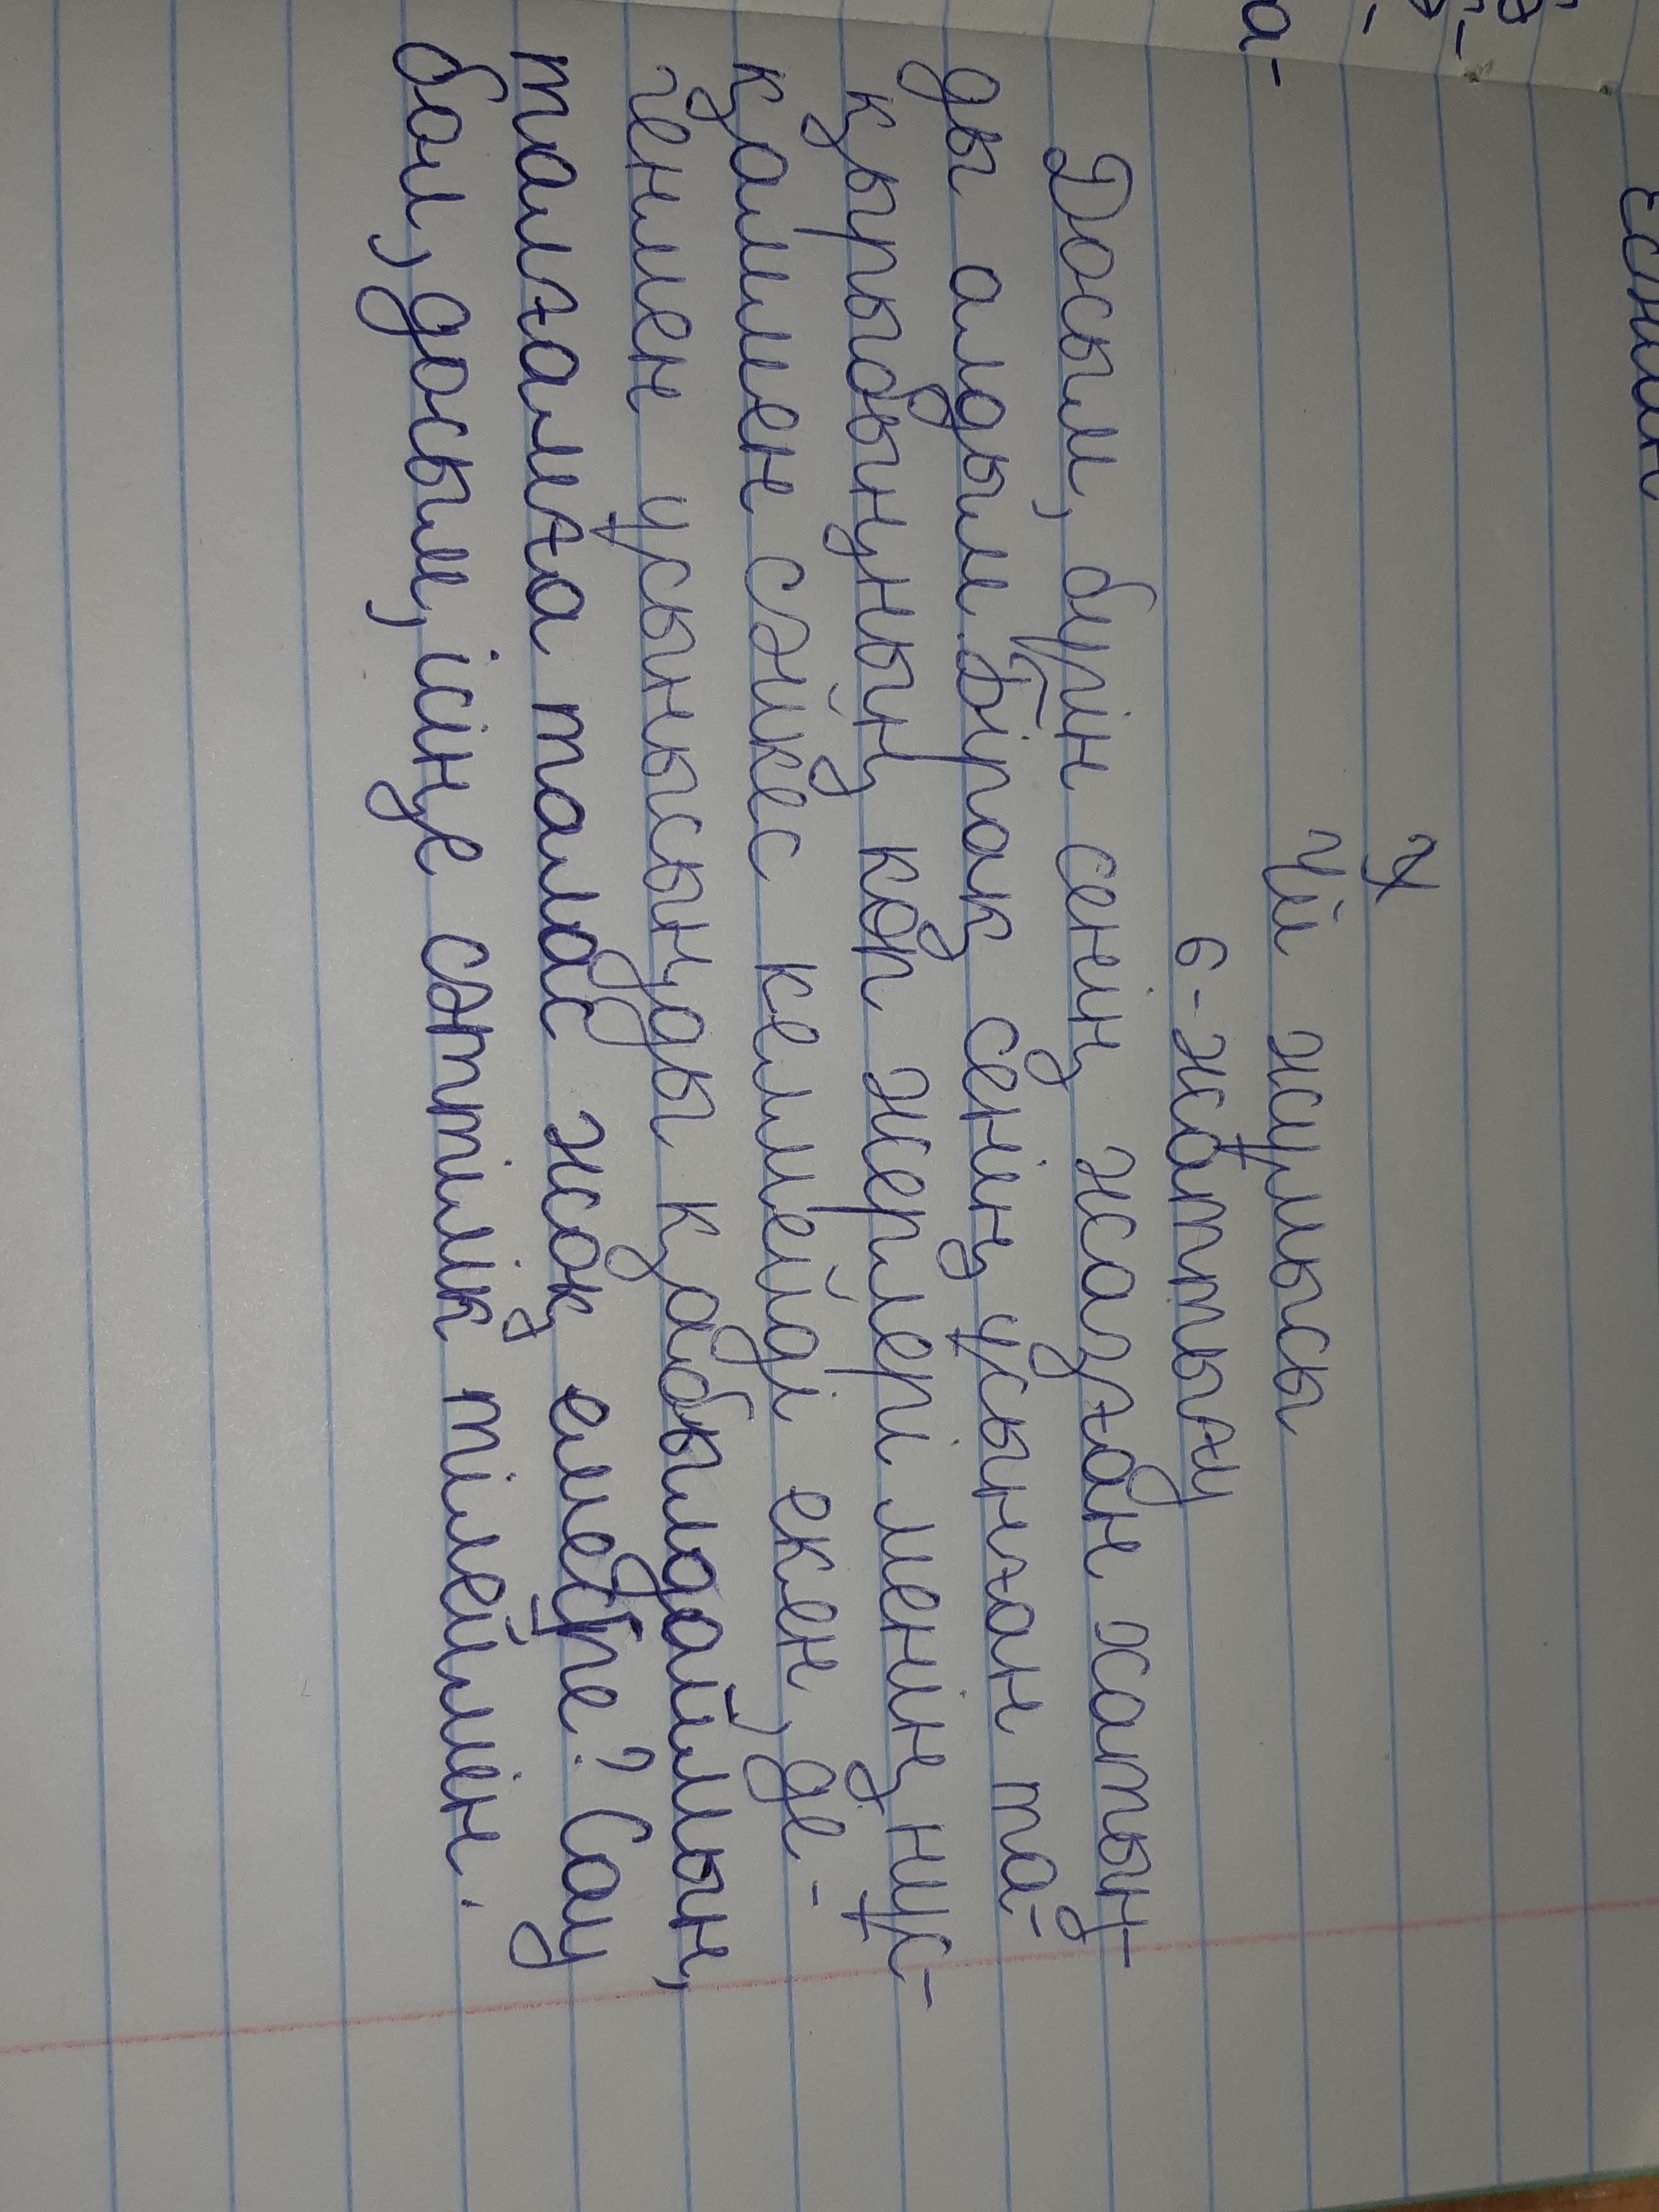 Үй жұмысы
6-жаттығу
Досым, бүгін сенің жазған хатың-
ды алдым. Бірақ сенің ұсынған та-
қырыбыңның көп жерлері менің нұс-
қаммен сәйкес келмейді екен, де-
генмен ұсынысыңды қабылдаймын,
талғамға талас жоқ емес пе? Сау
бол, досым, ісіңе сәттілік тілеймін.